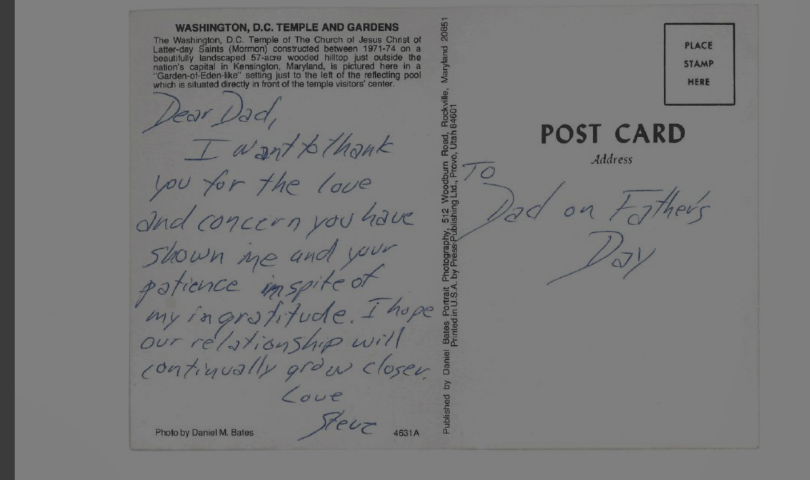 WASHINGTON, D.C. TEMPLE AND GARDENS
The Washington, D.C. Temple of The Church of Jesus Christ of
Latter-day Saints (Mormon) constructed between 1971-74 on a
beautifully landscaped 57-acre wooded hilltop just outside the
nation's capital in Kensington, Maryland, is pictured here in a
"Garden-of-Eden-like" setting just to the left of the reflecting pool
which is situated directly in front of the temple visitors' center.
Dear Dad,
I want to thank
you for the love
and concern you have
shown me and your
patience inspite of
my ingratitude. I hope
our relationship will
continually grow closer.
Love
Steve
Photo by Daniel M. Bates
4631A
Published by Daniel Bates Portrait Photography, 512 Woodburn Road, Rockville, Maryland 20851
Printed in U.S.A. by Press Publishing Ltd., Provo, Utah 84601
PLACE
STAMP
HERE
POST CARD
Address
TO
Dad on Father's
Day